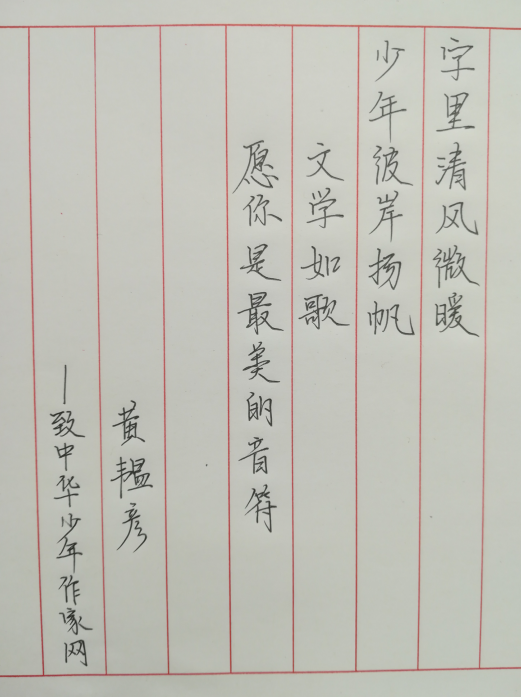 字里清风微暖
少年彼岸扬帆
文学如歌
愿你是最美的音符
黄韫彦
—致中华少年作家网